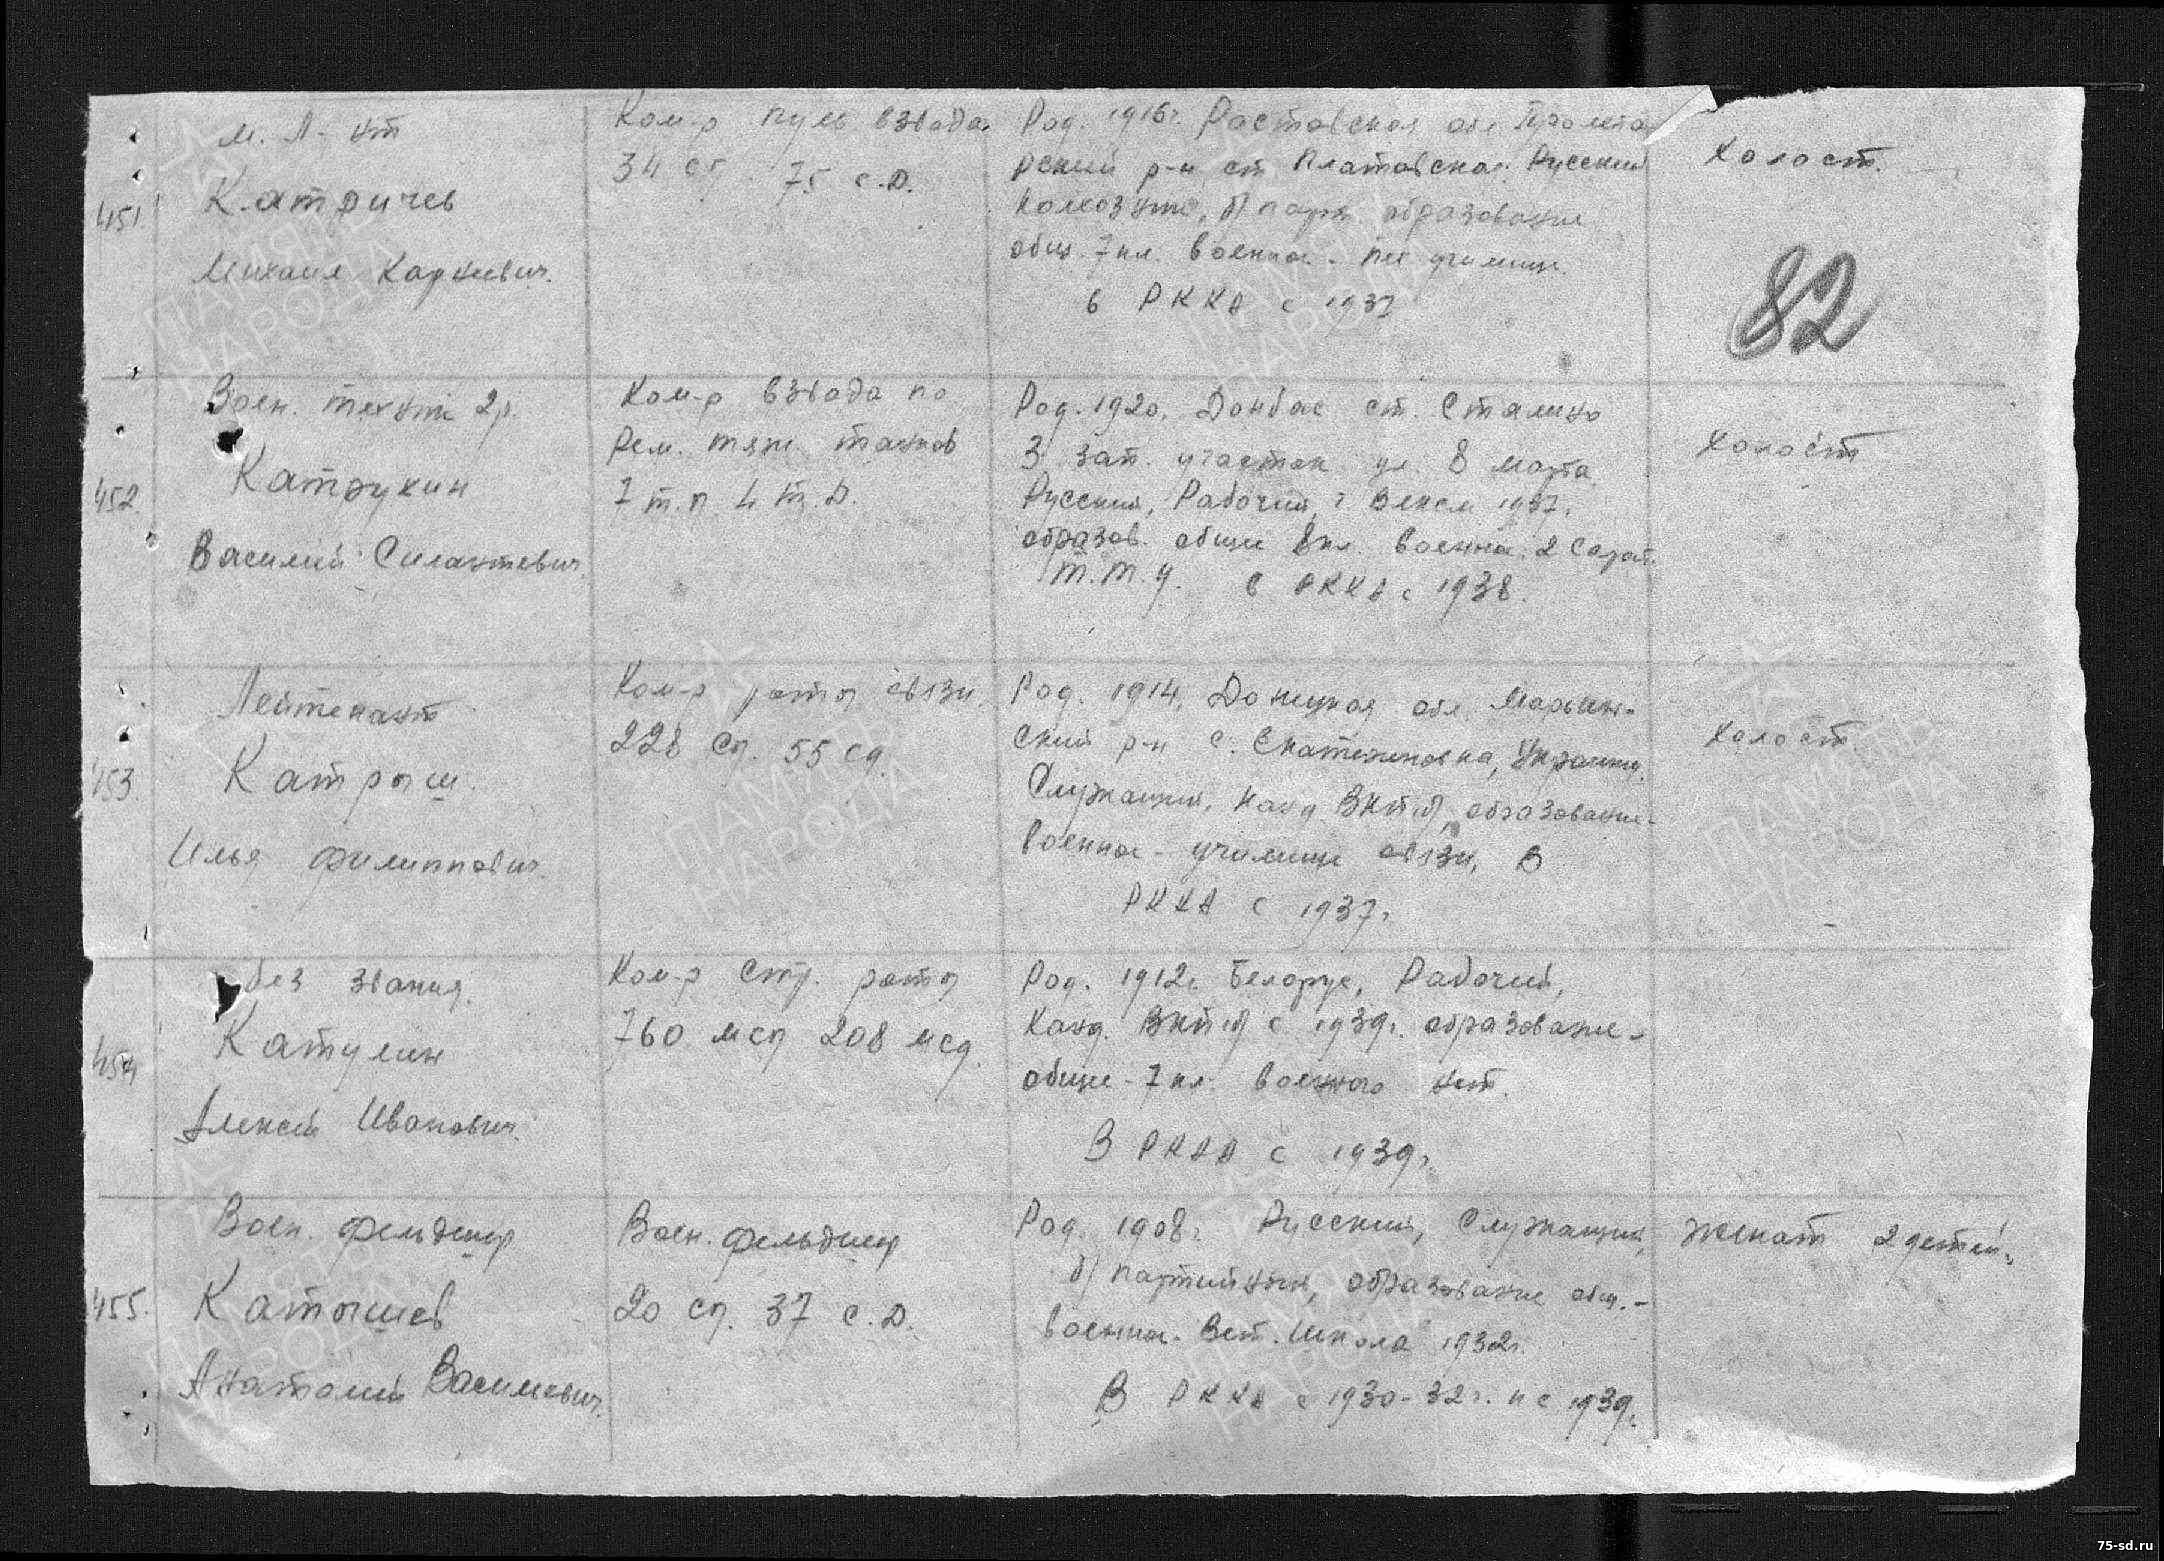 451.
М. Л-нт
Катричев
Михаил Карнеевич.
Ком-р пуль взвода
34 сп. 75 с.д.
Род. 1916г. Ростовская обл Пролета
рский р-н ст Платовская. Русский
колхозник, б/парт. образование
общ. 7 кл. военное - пех училище
в РККА с 1937
Холост.
82
452.
Воен. техник 2р.
Катрухин
Василий Силантевич
Ком-р взвода по
рем. тяж. танков
7 т.п. 4 т.д.
Род. 1920. Донбас ст. Сталино
3 зап. участок ул. 8 марта
Русский, Рабочий, Влксм 1937.
образов. общее 8 кл. военное. 2 Сарат.
Т.Т.У. в РККА с 1938.
Холост
453.
Лейтенант
Катрыш.
Илья Филиппович.
Ком-р роты связи
228 сп. 55 сд.
Род. 1914, Донецкая обл Марьин-
ский р-н с. Екатериновка, Украинец.
Служащий, канд ВКП/б, образование-
Военное - училище связи, В
РККА с 1937г.
Холост.
454
без звания.
Катулин
Алексей Иванович.
Ком-р стр. роты
760 мсп 208 мсд.
Род. 1912г. Белорус, Рабочий,
канд. ВКП/б с 1939г. образование-
общее - 7 кл. военного нет.
В РККА с 1939г.
455.
Воен. фельдшер
Катышев
Анатолий Васильевич.
Воен. фельдшер
20 сп. 37 с.д.
Род. 1908г. Русский, Служащий,
б/партийный, образование общ. -
военное. Вет. Школа 1932г.
В РККА с 1930-32г. и с 1939г.
Женат 2 детей.
ПАМЯТЬ
НАРОДА
75-sd.ru